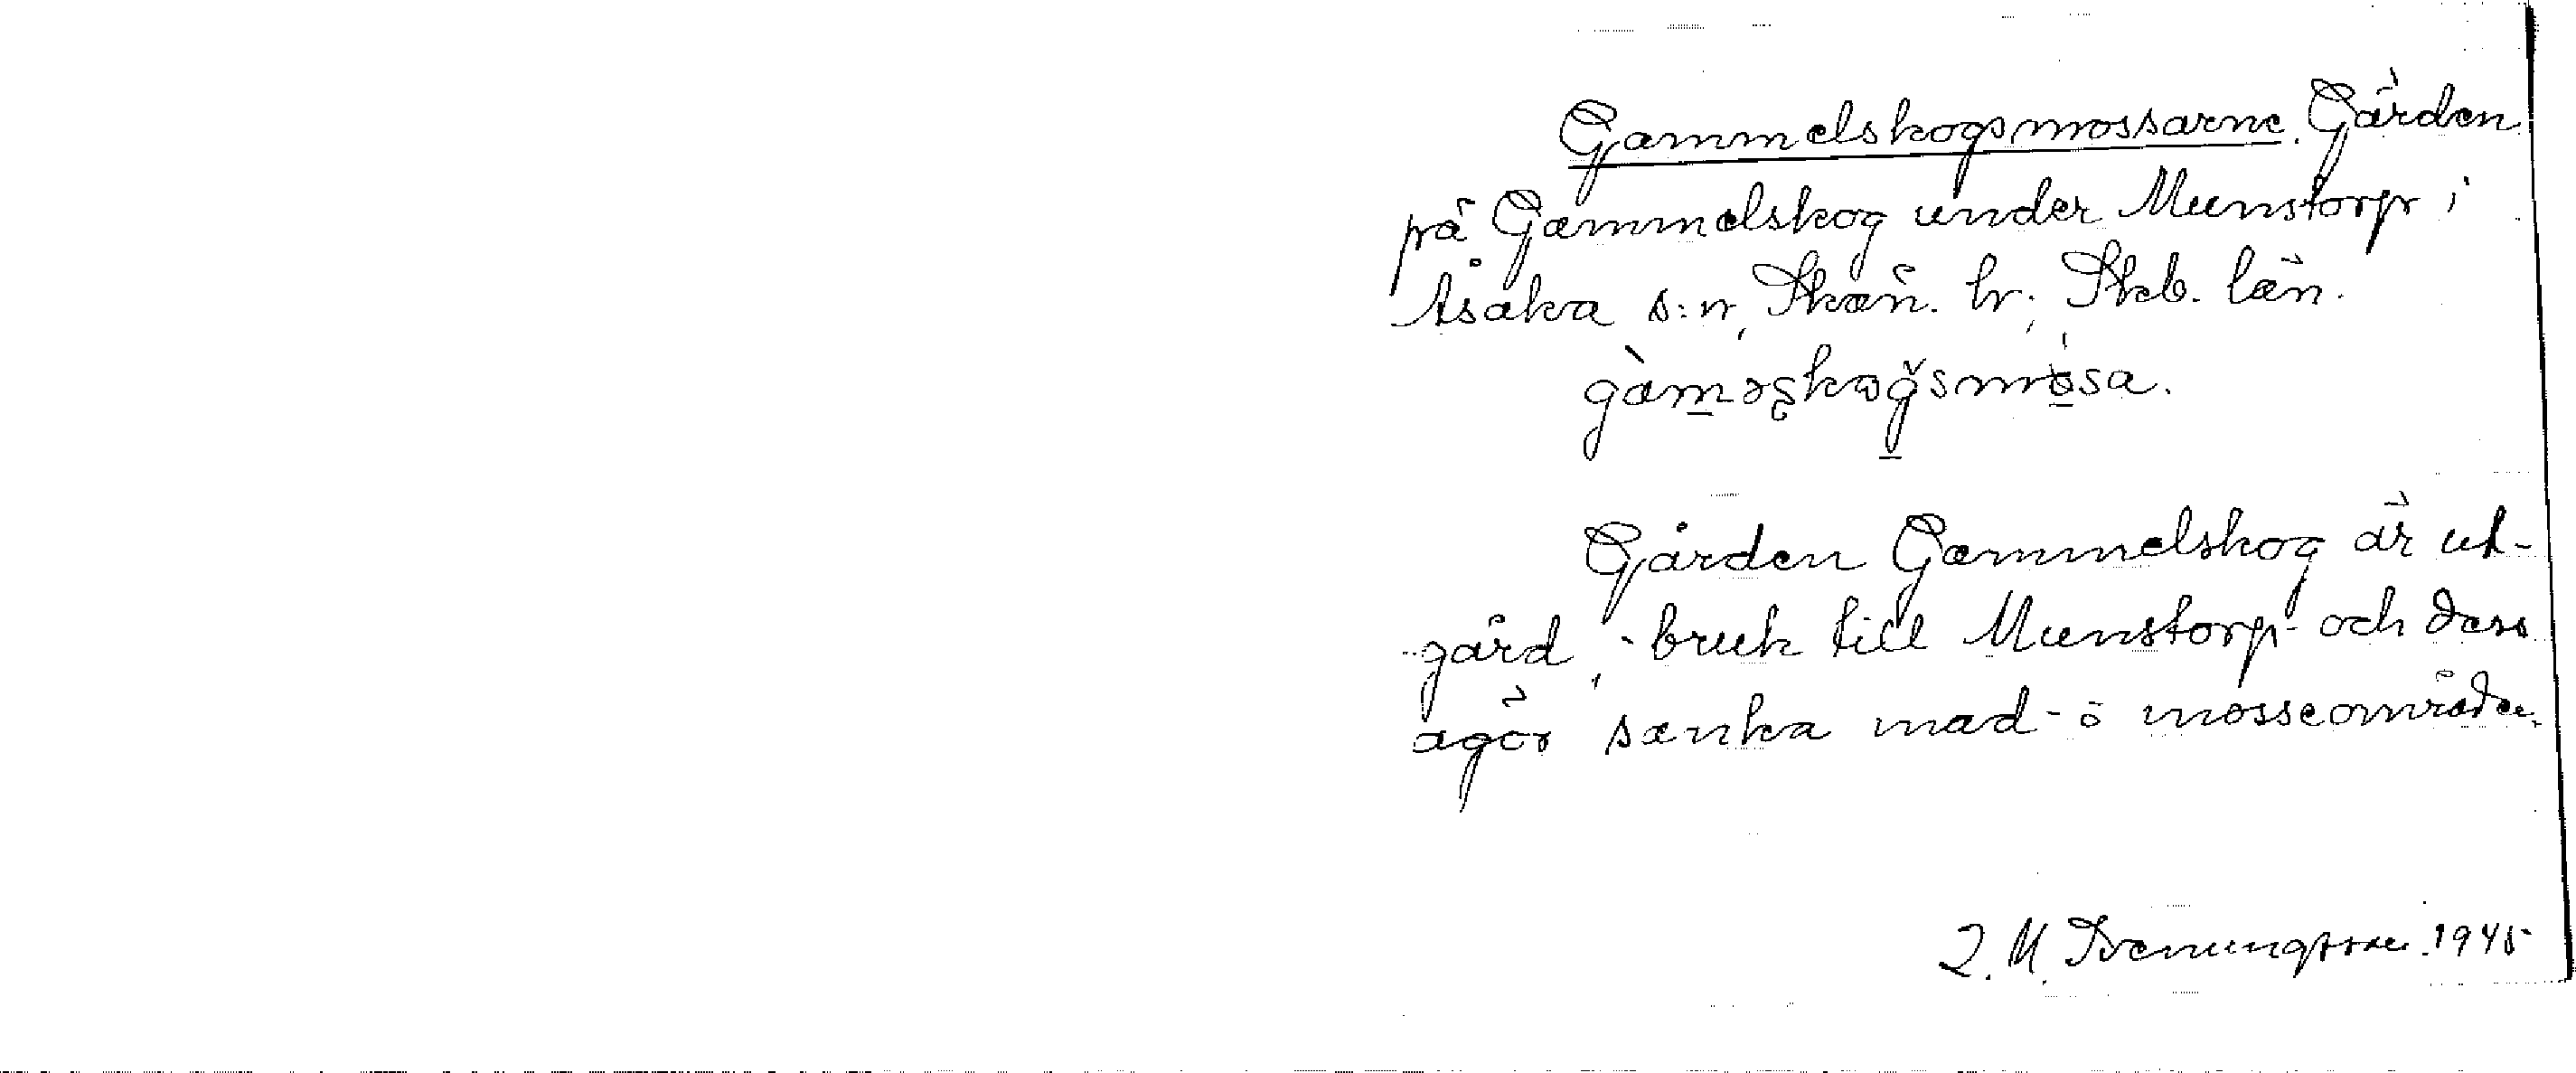 Gammelskogsmossarne. Gärden
på Gammelskog under Munstorp i
Åsaka s:n, Skän. hr; Skb. län.
gàməskoğsmosa.
Gården Gammelskog är ut-
gård, -bruk till Munstorp och dess
ägor sanka mad- o mosseområden.
1945